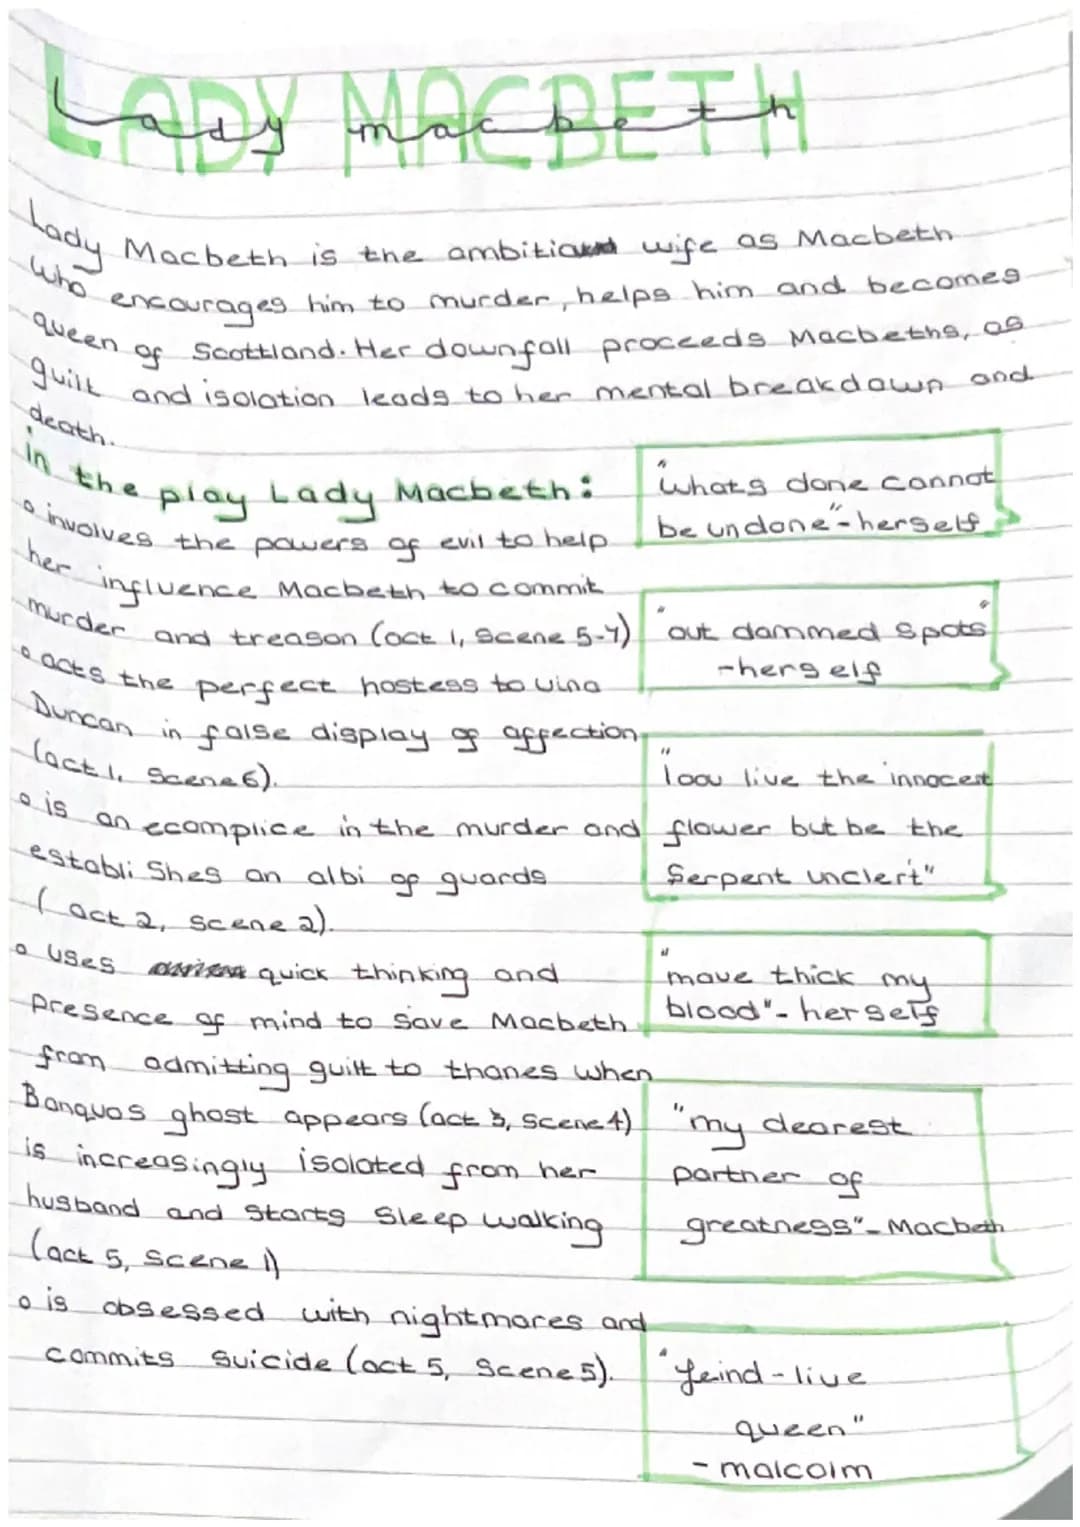 LADY MACBETH
Lady macbeth
Lady Macbeth is the ambitiaund wife as Macbeth
who encourages him to murder, helps him and becomes
queen of Scottland. Her downfall proceeds Macbeths, as
guilt and isolation leads to her mental breakdown and
death.
in the play Lady Macbeth:
o involves the powers of evil to help
her influence Macbeth to commit
murder and treason (act 1, scene 5-7)
o acts the perfect hostess to
Duncan in false display of affection
(act 1, scene 6).
o is an ecomplice in the murder and
establi Shes an albi of guards
(act 2, scene 2).
o uses quick thinking and
presence of mind to save Macbeth
from admitting guilt to thanes when
Banquos ghost appears (act 3, scene 4)
is increasingly isolated from her
husband and starts sleep walking
(act 5, scene 1)
o is obsessed with nightmares and
commits suicide (act 5, scene 5).
"whats done cannot
be undone"- herself
"out dammed spots"
-herself
"look like the innocent
flower but be the
Serpent unclert"
"make thick my
blood"- herself
"my dearest
partner of
greatness"- Macbeth
"feind-like
queen"
- malcolm